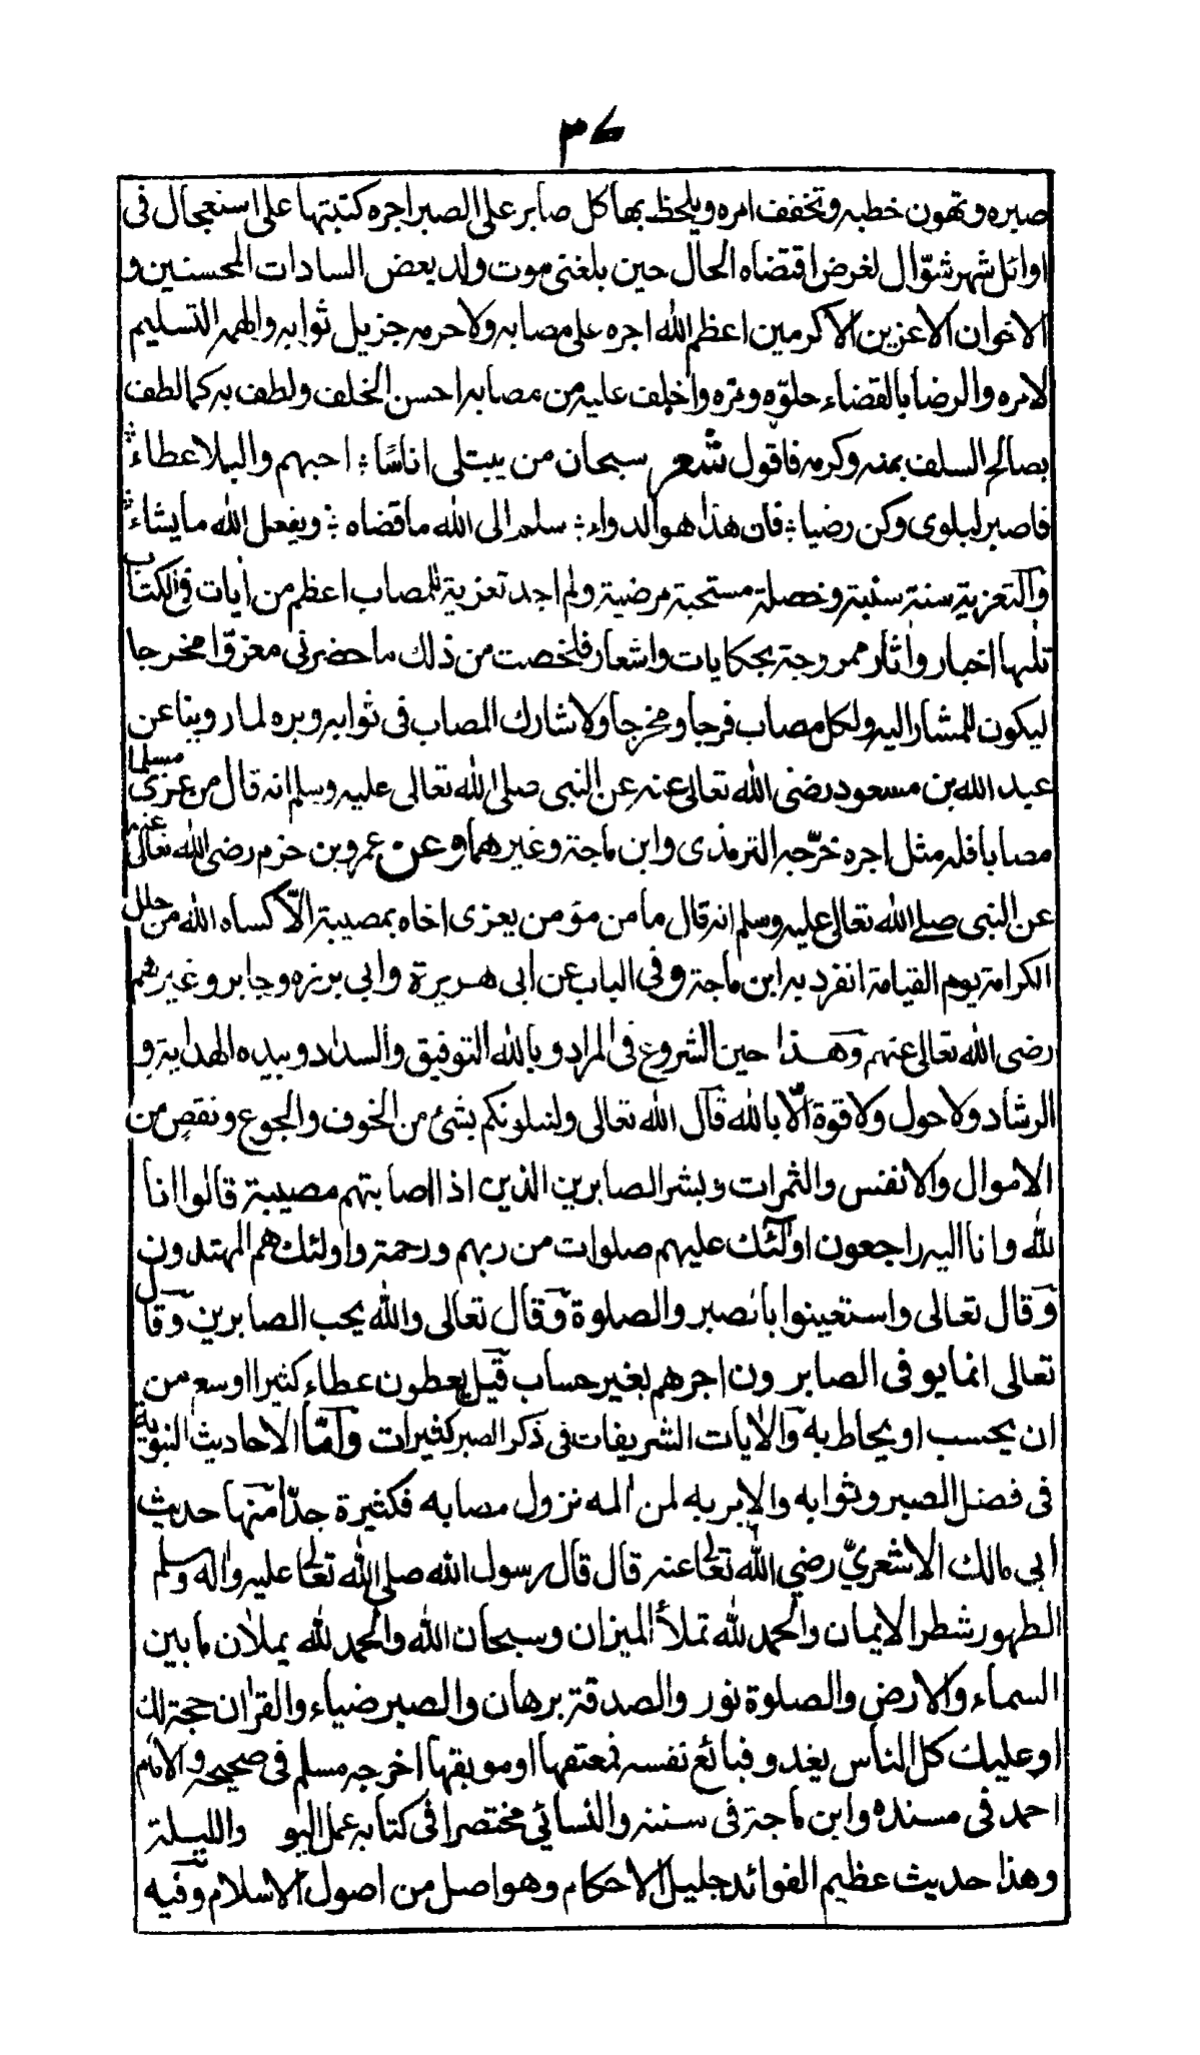 ٣٧
صبره وتهون خطبه وتخفف امره ويلحظ بها كل صابر على الصبر اجره كتبتها على استعجال فى
اوائل شهر شوّال لغرض اقتضاه الحال حين بلغنى موت ولد بعض السادات المحسنين و
الاخوان الاعزين الاكرمين اعظم الله اجره على مصابه ولا حرمه جزيل ثوابه والهمه التسليم
لامره والرضا بالقضاء حلوّه ومرّه واخلف عليه من مصابه احسن الخلف ولطف به كما لطف
بصالح السلف بمنه وكرمه فاقول شعر سبحان من يبتلى اناسًا ؛ احبهم والبلا عطاء ؛
فاصبر لبلوى وكن رضيا ؛ فان هذا هو الدواء ؛ سلم الى الله ما قضاه ؛ ويفعل الله ما يشاء ؛
والتعزية سنة سنية وخصلة مستحبة مرضية ولم اجد تعزية للمصاب اعظم من أيات فى الكتاب
تلها اخبار واثار ممروجة بحكايات واشعار فلخصت من ذلك ما حضرنى معزوّا مخرجا
ليكون للمشار اليه ولكل مصاب فرجا ومخرجا ولا شارك المصاب فى ثوابه وبره لما روينا عن
عبد الله بن مسعود رضى الله تعالى عنه عن النبى صلى الله تعالى عليه وسلم انه قال من عزى مسلما
مصابا فله مثل اجره خرّجه الترمذى وابن ماجة وغيرهما وعن عمرو بن حزم رضى الله تعالى عنه
عن النبى صلے الله تعالى عليه وسلم انه قال ما من مؤمن يعزى اخاه بمصيبة الّا كساه الله من حلل
الكرامة يوم القيامة انفرد به ابن ماجة وفى الباب عن أبى هريرة وابى برزه وجابر وغيرهم
رضى الله تعالى عنهم وهذا حين الشروع فى المراد وبالله التوفيق والسداد وبيده الهداية و
الرشاد ولا حول ولا قوة الّا بالله قال الله تعالى ولنبلونكم بشئ من الخوف والجوع ونقص من
الاموال والانفس والثمرات وبشر الصابرين الذين اذا اصابتهم مصيبة قالوا انا
لله وانا اليه راجعون اولٰئك عليهم صلوات من ربهم ورحمة واولئك هم المهتدون
وقال تعالى واستعينوا بالصبر والصلوة وقال تعالى والله يحب الصابرين وقال
تعالى انما يوفى الصابرون اجرهم بغير حساب قيل يعطون عطاء كثيرا اوسع من
ان يحسب او يحاط به والايات الشريفات فى ذكر الصبر كثيرات وامّا الاحاديث النبوية
فى فضل الصبر وثوابه والابر به لمن المه نزول مصابه فكثيرة جدّا منها حديث
ابى مالك الاشعريّ رضي الله تعالى عنه قال قال رسول الله صلى الله تعالى عليه واله وسلم
الطهور شطر الايمان والحمد لله تملأ الميزان وسبحان الله والحمد لله يملأن ما بين
السماء والارض والصلوة نور والصدقة برهان والصبر ضياء والقرأن حجة لك
او عليك كل الناس يغدو فبائع نفسه فمعتقها او موبقها اخرجه مسلم فى صحيحه والامام
احمد فى مسنده وابن ماجة فى سننه والنسائي مختصرا فى كتابه عمل اليو والليلة
وهذا حديث عظيم الفوائد جليل الاحكام وهو اصل من اصول الاسلام وفيه